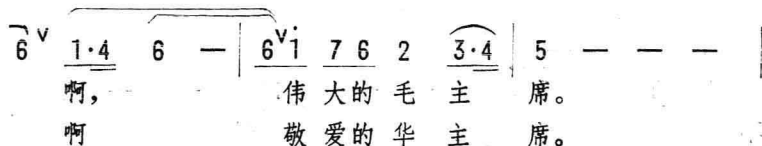 6 ∨ 1·4 6 — | 6 ∨ i 7 6 2 3·4 | 5 — — — |
啊， 伟 大 的 毛 主 席。
啊 敬 爱 的 华 主 席。